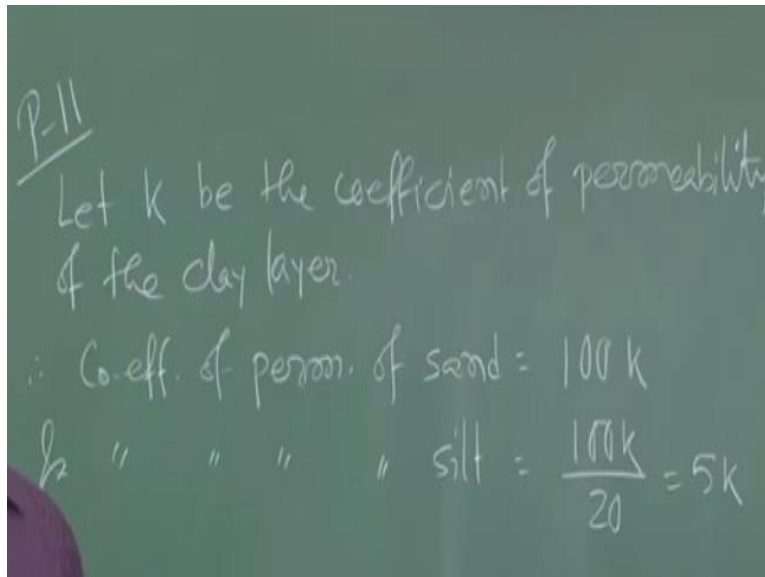 P-11
Let k be the coefficient of permeability
of the clay layer.
∴ Co-eff. of perm. of sand = 100 k
& " " " " silt = 100k/20 = 5k